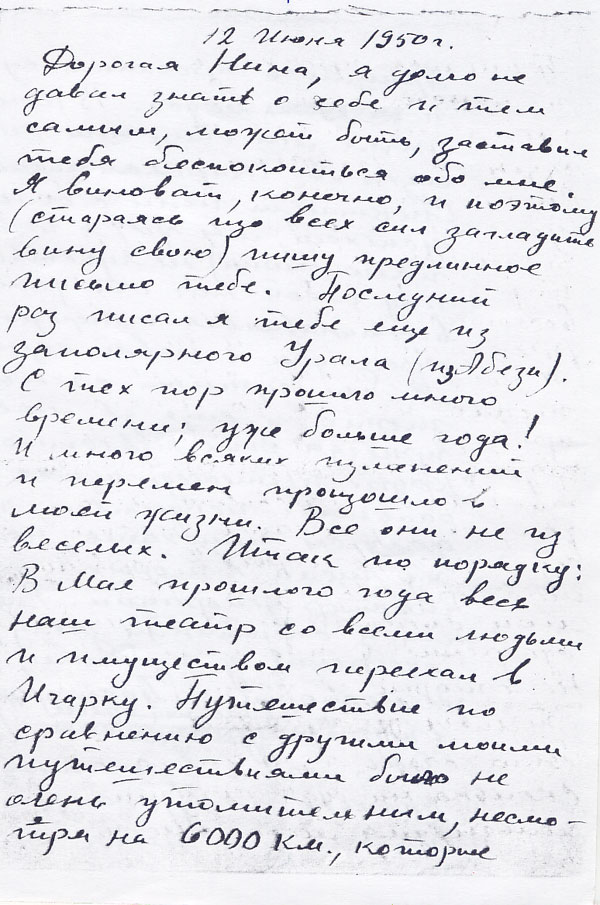 12 Июня 1950г.
Дорогая Нина, я долго не
давал знать о себе и тем
самым, может быть, заставил
тебя беспокоиться обо мне.
Я виноват, конечно, и поэтому
(стараясь изо всех сил загладить
вину свою) пишу предлинное
письмо тебе. Последний
раз писал я тебе еще из
заполярного Урала (из Абези).
С тех пор прошло много
времени; уже больше года!
И много всяких изменений
и перемен произошло в
моей жизни. Все они не из
веселых. Итак по порядку:
В Мае прошлого года весь
наш театр со всеми людьми
и имуществом переехал в
Игарку. Путешествие по
сравнению с другими моими
путешествиями было не
очень утомительным, несмо-
тря на 6000 км., которые